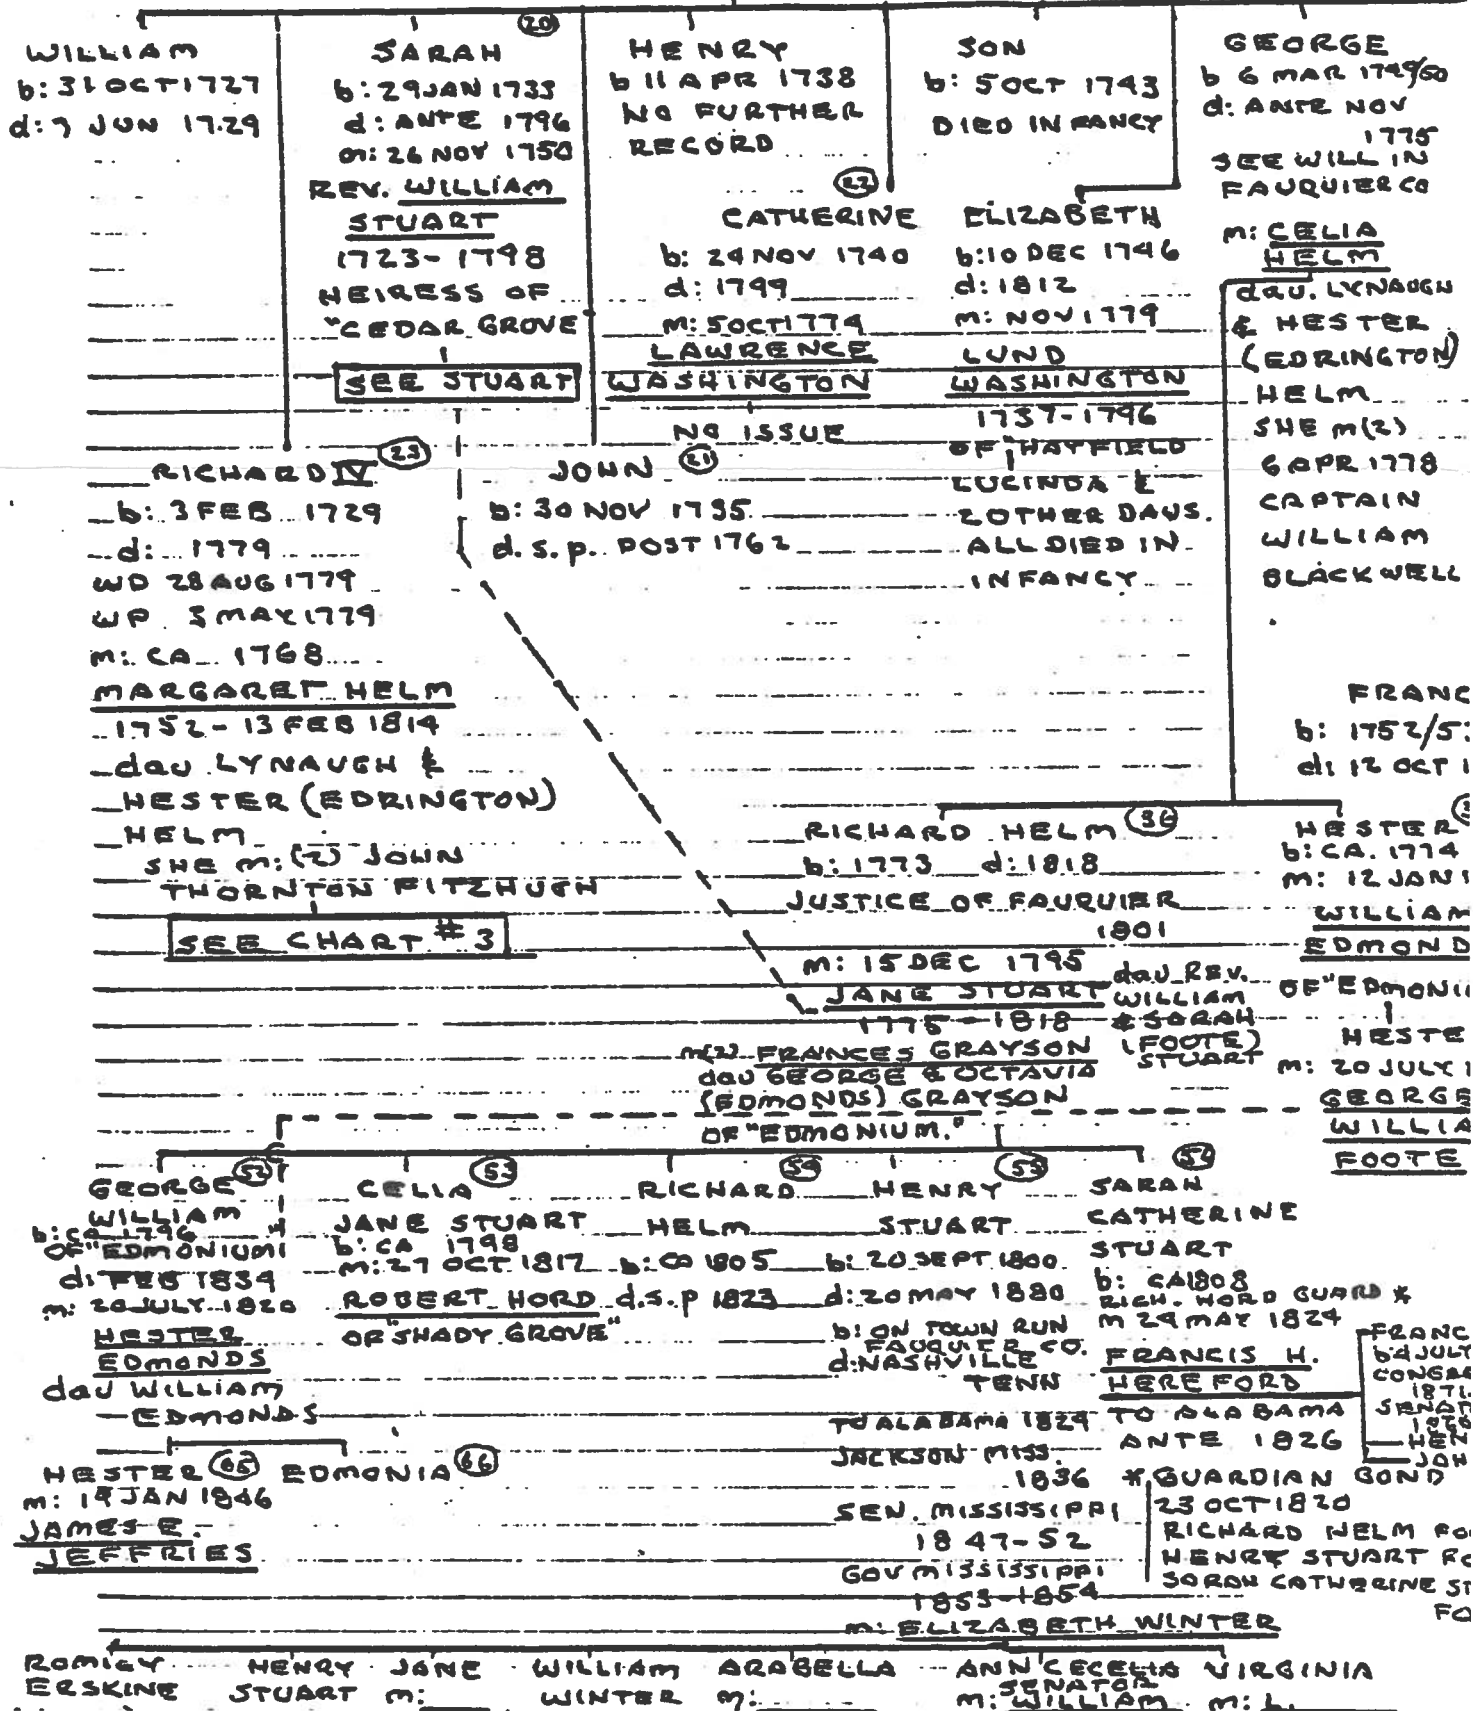 WILLIAM
b: 31 OCT 1727
d: 7 JUN 17.29
20
SARAH
b: 29 JAN 1733
d: ANTE 1796
m: 26 NOV 1750
REV. WILLIAM
STUART
1723-1798
HEIRESS OF
"CEDAR GROVE"
SEE STUART
HENRY
b 11 APR 1738
NO FURTHER
RECORD
SON
b: 5 OCT 1743
DIED INFANCY
GEORGE
b 6 MAR 1749/50
d: ANTE NOV
1775
SEE WILL IN
FAUQUIER CO
m: CELIA
HELM
dau. LYNAUGH
& HESTER
(EDRINGTON)
HELM
SHE m(2)
6 APR 1778
CAPTAIN
WILLIAM
BLACKWELL
22
CATHERINE
b: 24 NOV 1740
d: 1799
m: 5 OCT 1774
LAWRENCE
WASHINGTON
NO ISSUE
ELIZABETH
b: 10 DEC 1746
d: 1812
m: NOV 1779
LUND
WASHINGTON
1737-1796
OF "HAYFIELD
LUCINDA &
2 OTHER DAUS.
ALL DIED IN
INFANCY
RICHARD IV 23
b: 3 FEB 1729
d: 1779
WD 28 AUG 1779
WP 3 MAY 1779
m: CA 1768
MARGARET HELM
1752- 13 FEB 1814
dau LYNAUGH &
HESTER (EDRINGTON)
HELM
SHE m: (2) JOHN
THORNTON FITZHUGH
SEE CHART #3
JOHN 21
b: 30 NOV 1735
d. s. p. POST 1762
FRANC
b: 1752/5
d: 12 OCT 1
RICHARD HELM 36
b: 1773 d: 1818
JUSTICE OF FAUQUIER
1801
m: 15 DEC 1795
JANE STUART
1775-1818
dau REV.
WILLIAM
& SARAH
(FOOTE)
STUART
m(2) FRANCES GRAYSON
dau GEORGE & OCTAVIA
(EDMONDS) GRAYSON
OF "EDMONIUM."
HESTER
b: CA. 1774
m: 12 JAN 1
WILLIAM
EDMOND
OF "EDMONIU
HESTE
m: 20 JULY 1
GEORGE
WILLIA
FOOTE
GEORGE 52
WILLIAM
b: CA 1796
OF "EDMONIUM
d: FEB 1834
m: 20 JULY 1820
HESTER
EDMONDS
dau WILLIAM
EDMONDS
CELIA 53
JANE STUART
b: CA 1798
m: 27 OCT 1817
ROBERT HORD
OF "SHADY GROVE"
RICHARD 54
HELM
b: CA 1805
d.s.p 1823
HENRY 55
STUART
b: 20 SEPT 1800
d: 20 MAY 1880
b: ON TOWN RUN
FAUQUIER CO.
d: NASHVILLE
TENN
TO ALABAMA 1824
JACKSON MISS.
1836
SEN. MISSISSIPPI
1847-52
GOV MISSISSIPPI
1853-1854
m: ELIZABETH WINTER
SARAH
CATHERINE
STUART
b: CA 1808
RICH. HORD GUARD *
m 24 MAY 1824
FRANCIS H.
HEREFORD
TO ALABAMA
ANTE 1826
FRANC
b 4 JULY
CONGRE
1871
SENAT
HEN
JOH
* GUARDIAN BOND
23 OCT 1820
RICHARD HELM FO
HENRY STUART FO
SARAH CATHERINE ST
FO
HESTER 65
m: 19 JAN 1846
JAMES E.
JEFFRIES
EDMONIA 66
ROMILY
ERSKINE
HENRY
STUART
JANE
m:
WILLIAM
WINTER
ARABELLA
m:
ANN CECELIA
SENATOR
m: WILLIAM
VIRGINIA
m: L.